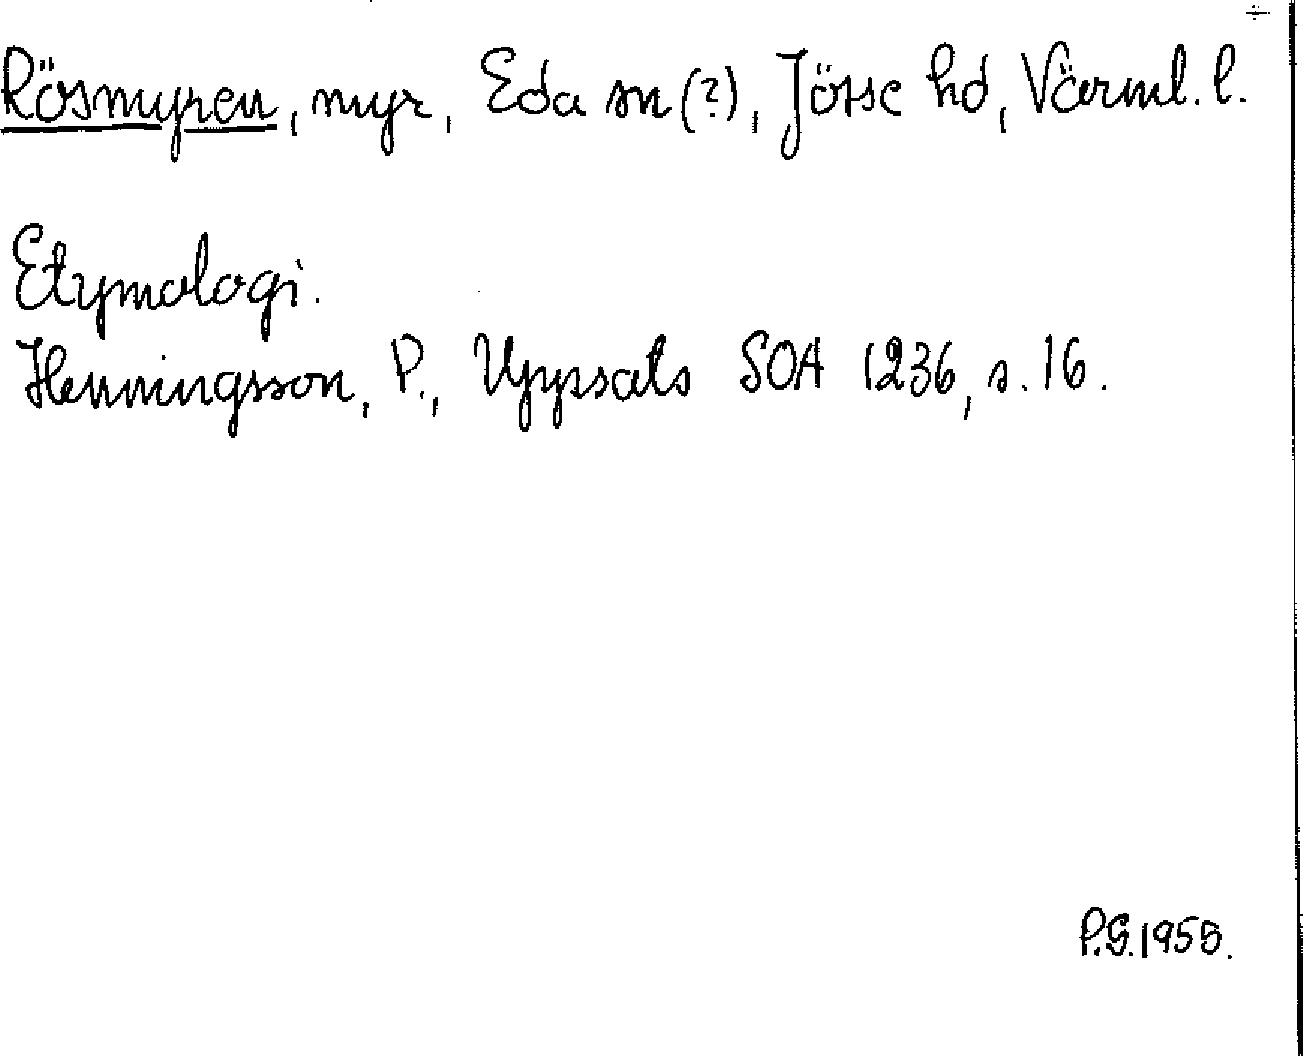 ÷
Rösmyren, myr, Eda sn (?), Jösse hd, Värml. l.
Etymologi.
Henningsson, P., Uppsats SOA 1236, s. 16.
P.G. 1955.